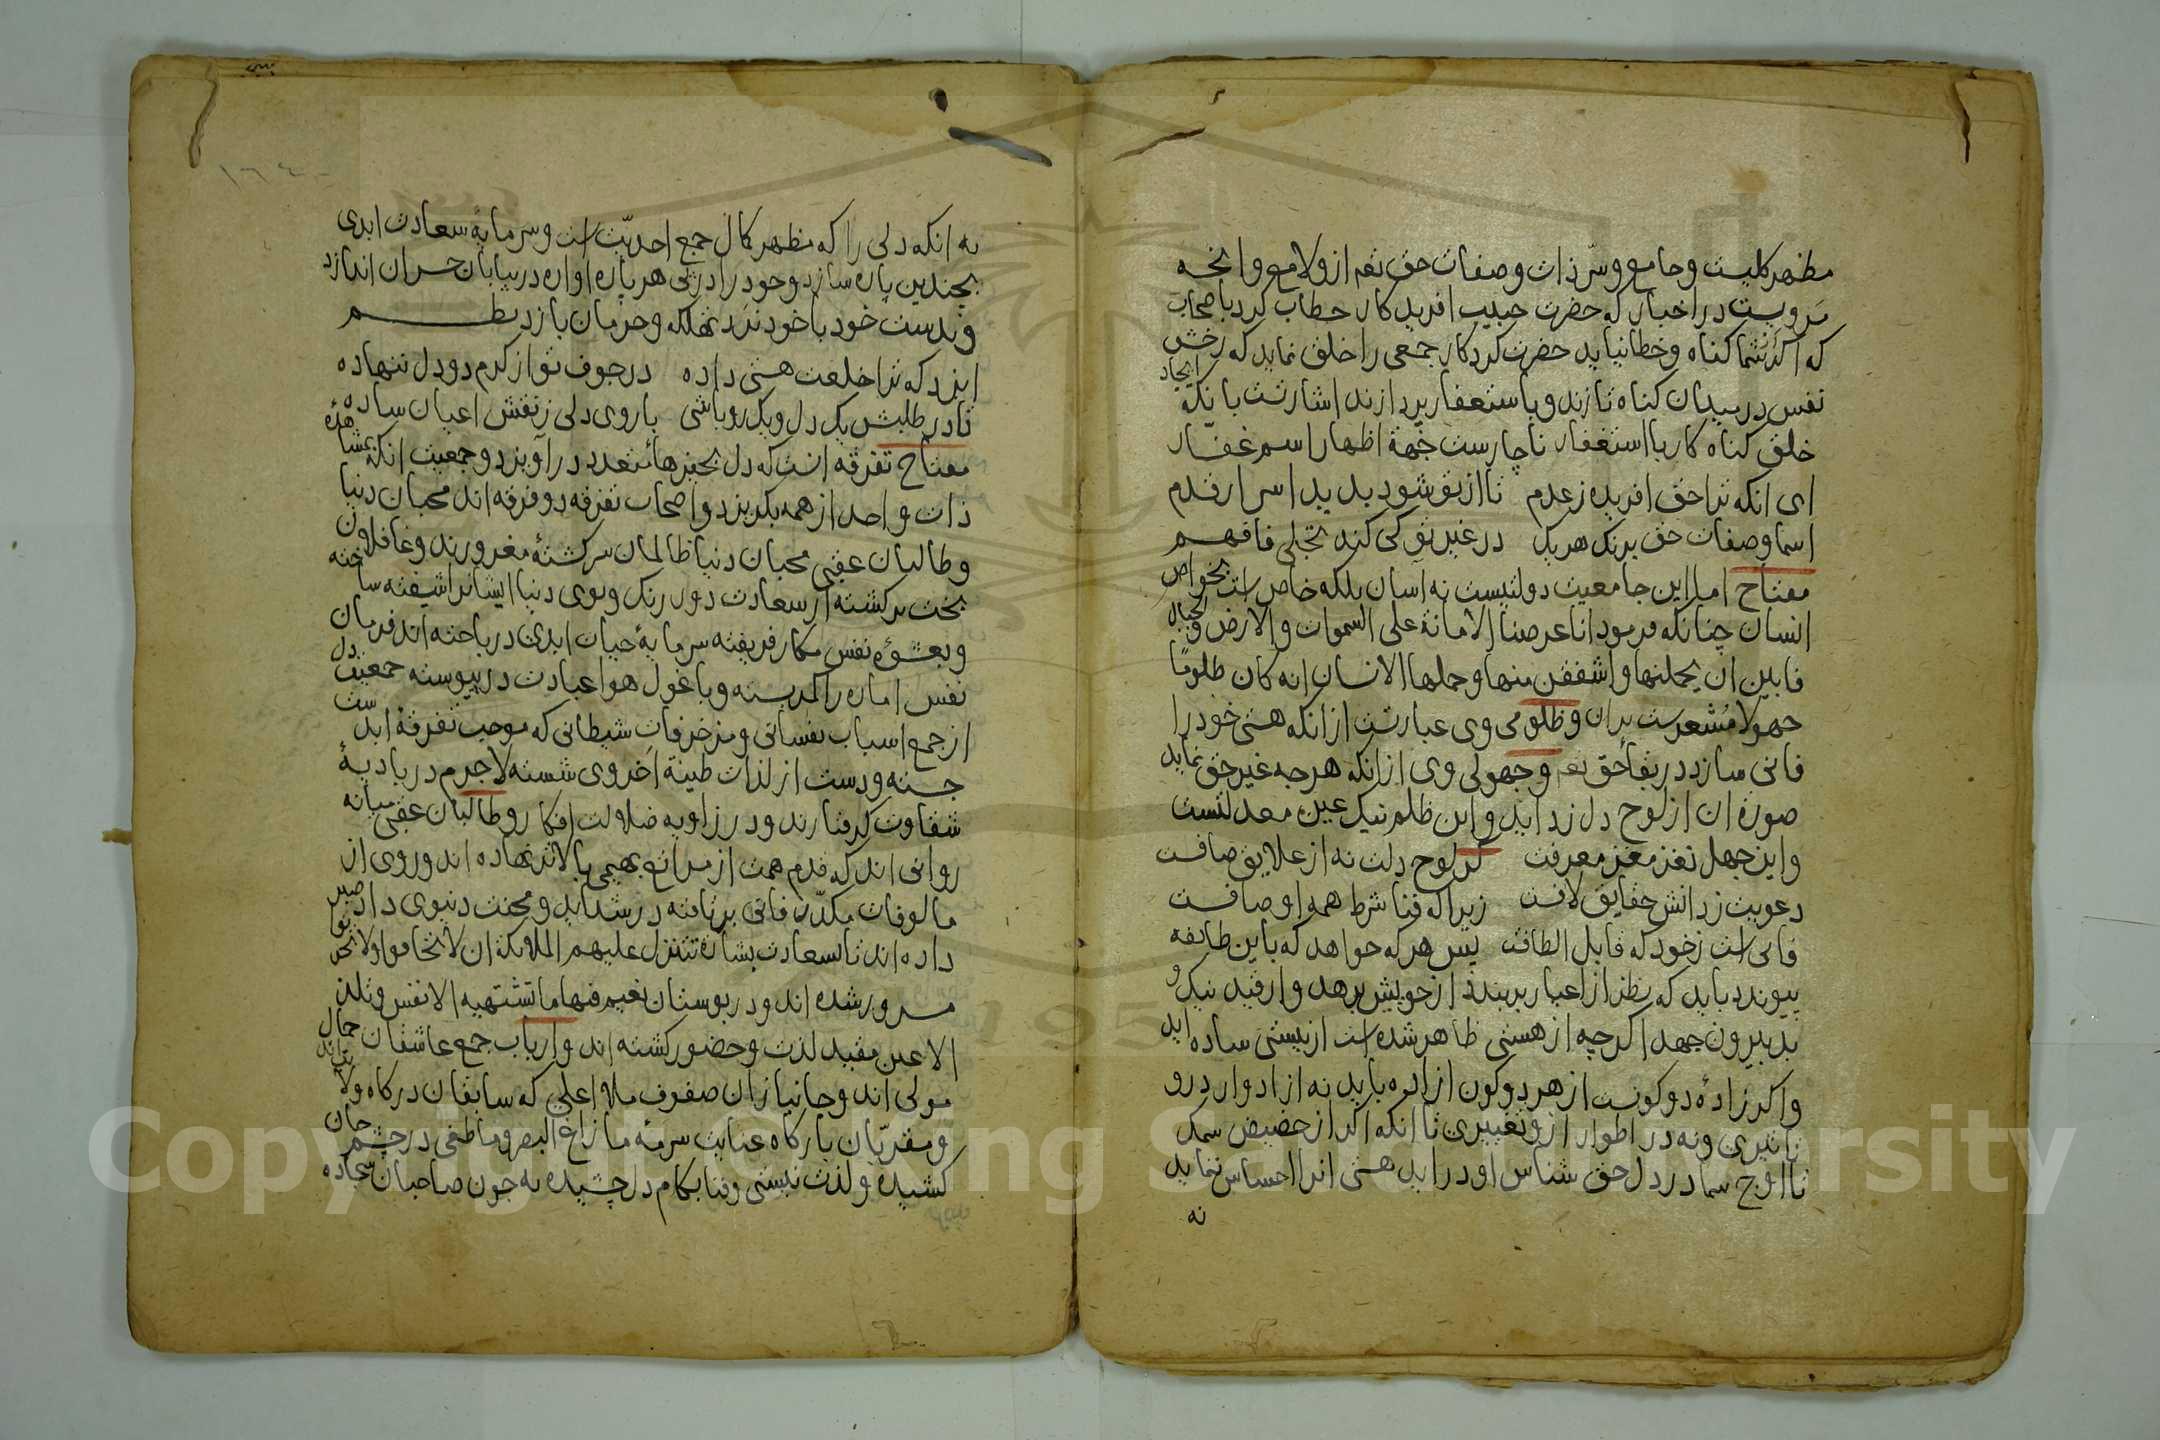 مظهر کلیست و جامع و سرّ ذات و صفات حق تعم ازو لامع و انحه
مرویست در اخبار که حضرت حبیب افریدکار خطاب کرد باصحاب
که اکر شما کناه و خطا نیاید حضرت کردکار جمعی را خلق نماید که رخش
نفس در میدان کناه تازند و باستغفار پردازند اشارتست بانکه ایجاد
خلق کناه کار با استغفار ناچارست جهة اظهار اسم غفّار
ای انکه ترا حق افریده ز عدم تا از تو شود پدید اسرار قدم
اسما و صفات حق برنک هر یک در غیر تو کی کند تجلی فافهم
مفتاح اما این جامعیت دولتیست نه آسان بلکه خاص است بخواص
انسان چنانکه فرمود انا عرضنا الامانة علی السموات و الارض و الجبال
فابین ان یحملنها و اشفقن منها و حملها الانسان انه کان ظلومًا
جهولا مُشعرست بدان و ظلومی وی عبارتست ازانکه هستی خود را
فانی سازد در بقاء حق تعم و جهولی وی ازانکه هرچه غیر حق نماید
صورة ان از لوح دل زداید و این ظلم نیک عین معدلتست
و این جهل نغز مغز معرفت کر لوح دلت نه از علایق صافست
دعویت ز دانش حقایق لافست زیرا که فنا شرط همه اوصافست
فانی است ز خود که قابل الطافست پس هر که خواهد که باین طایفه
پیوندد باید که نظر از اغیار بربندد از خویش برهد و از قید نیک و
بد بیرون جهد اکرچه از هستی ظاهر شده است از نیستی ساده اید
و اکر زادهٔ دو کونست از هر دو کون ازاده باید نه از ادوار درو
تاثیری و نه در اطوار ازو تغییری تا انکه اکر از حضیض سمک
تا اوج سما در دل حق شناس او درآید هستی انرا احساس ننماید
نه
١٦٤٠
نه انکه دلی را که مظهر کمال جمع احدیّت است و سرمایهٔ سعادت ابدی
بچندین پاره سازد و خود را در پی هر پاره اواره در بیابان حرمان اندازد
و بدست خود با خود نرد تهلکه و حرمان بازد نظم
ایزد که ترا خلعت هستی داده در جوف تو از کرم دو دل ننهاده
تا در طلبش یک دل و یک رو باشی با روی دلی ز نقش اعیان ساده
مفتاح تفرقه انست که دل بچیزهاء متعدد درآویزد و جمعیت انکه بمشاهدهٔ
ذات واحد از همه بکریزد و اصحاب تفرقه دو فرقه اند محبان دنیا
و طالبان عقبی محبان دنیا ظالمان سرکشتهٔ مغرورند و غافلان
بخت برکشته از سعادت دور رنک و بوی دنیا ایشانرا شیفته ساخته
و بعشوهٔ نفس مکار فریفته سرمایهٔ حیات ابدی درباخته اند فرمان
نفس اماره را کمر بسته و با غول هوا عبادت در پیوسته جمعیت دل
از جمع اسباب نفسانی و مزخرفات شیطانی که موجب تفرقهٔ ابدست
جسته و دست از لذات طیبة اخروی شسته لاجرم در بادیهٔ
شقاوت کرفتارند و در زاویه ضلالت افکار و طالبان عقبی میانه
روانی اند که قدم همت از مراتع بهیمی بالاتر نهاده اند و روی از
مالوفات مکدّرهٔ فانی برتافته در شداید و محنت دنیوی داد صبر
داده اند تا لسعادت بشارة تتنزل علیهم الملائکة ان لا تخافوا و لا تحزنوا
مسرور شده اند و در بوستان نعیم فیها ما تشتهیه الانفس و تلذ
الاعین مقید لذت و حضور کشته اند و ارباب جمع عاشقان جمال
مولی اند و جانبازان صفوف ملاء اعلی که سابقان درکاه ولایتند
و مقربّان بارکاه عنایت سرمهٔ ما زاغ البصر و ما طغی در چشم جان
کشیده و لذت نیستی و فنا بکام دل چشیده نه چون صاحبان سجاده
Copyright © King Saud University
1957